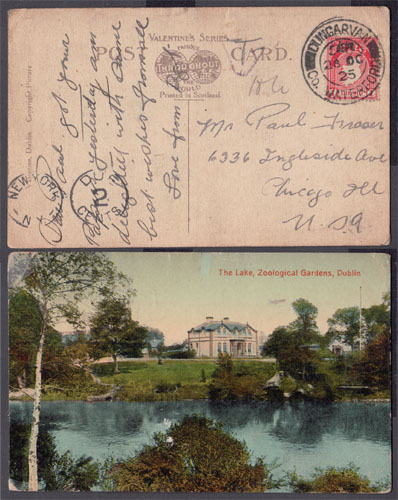 VALENTINE'S SERIES
POST CARD.
FAMOUS
THROUGHOUT
WORLD
Printed in Scotland
T
DUNGARVAN
26 OC
25
CO. WATERFORD
Mr Paul Fraser
6336 Ingleside Ave
Chicago Ill
U.S.A
Dublin. Copyright
NEW
Paul got your
yesterday am
delighted with same
best wishes from all
Love from
The Lake, Zoological Gardens, Dublin